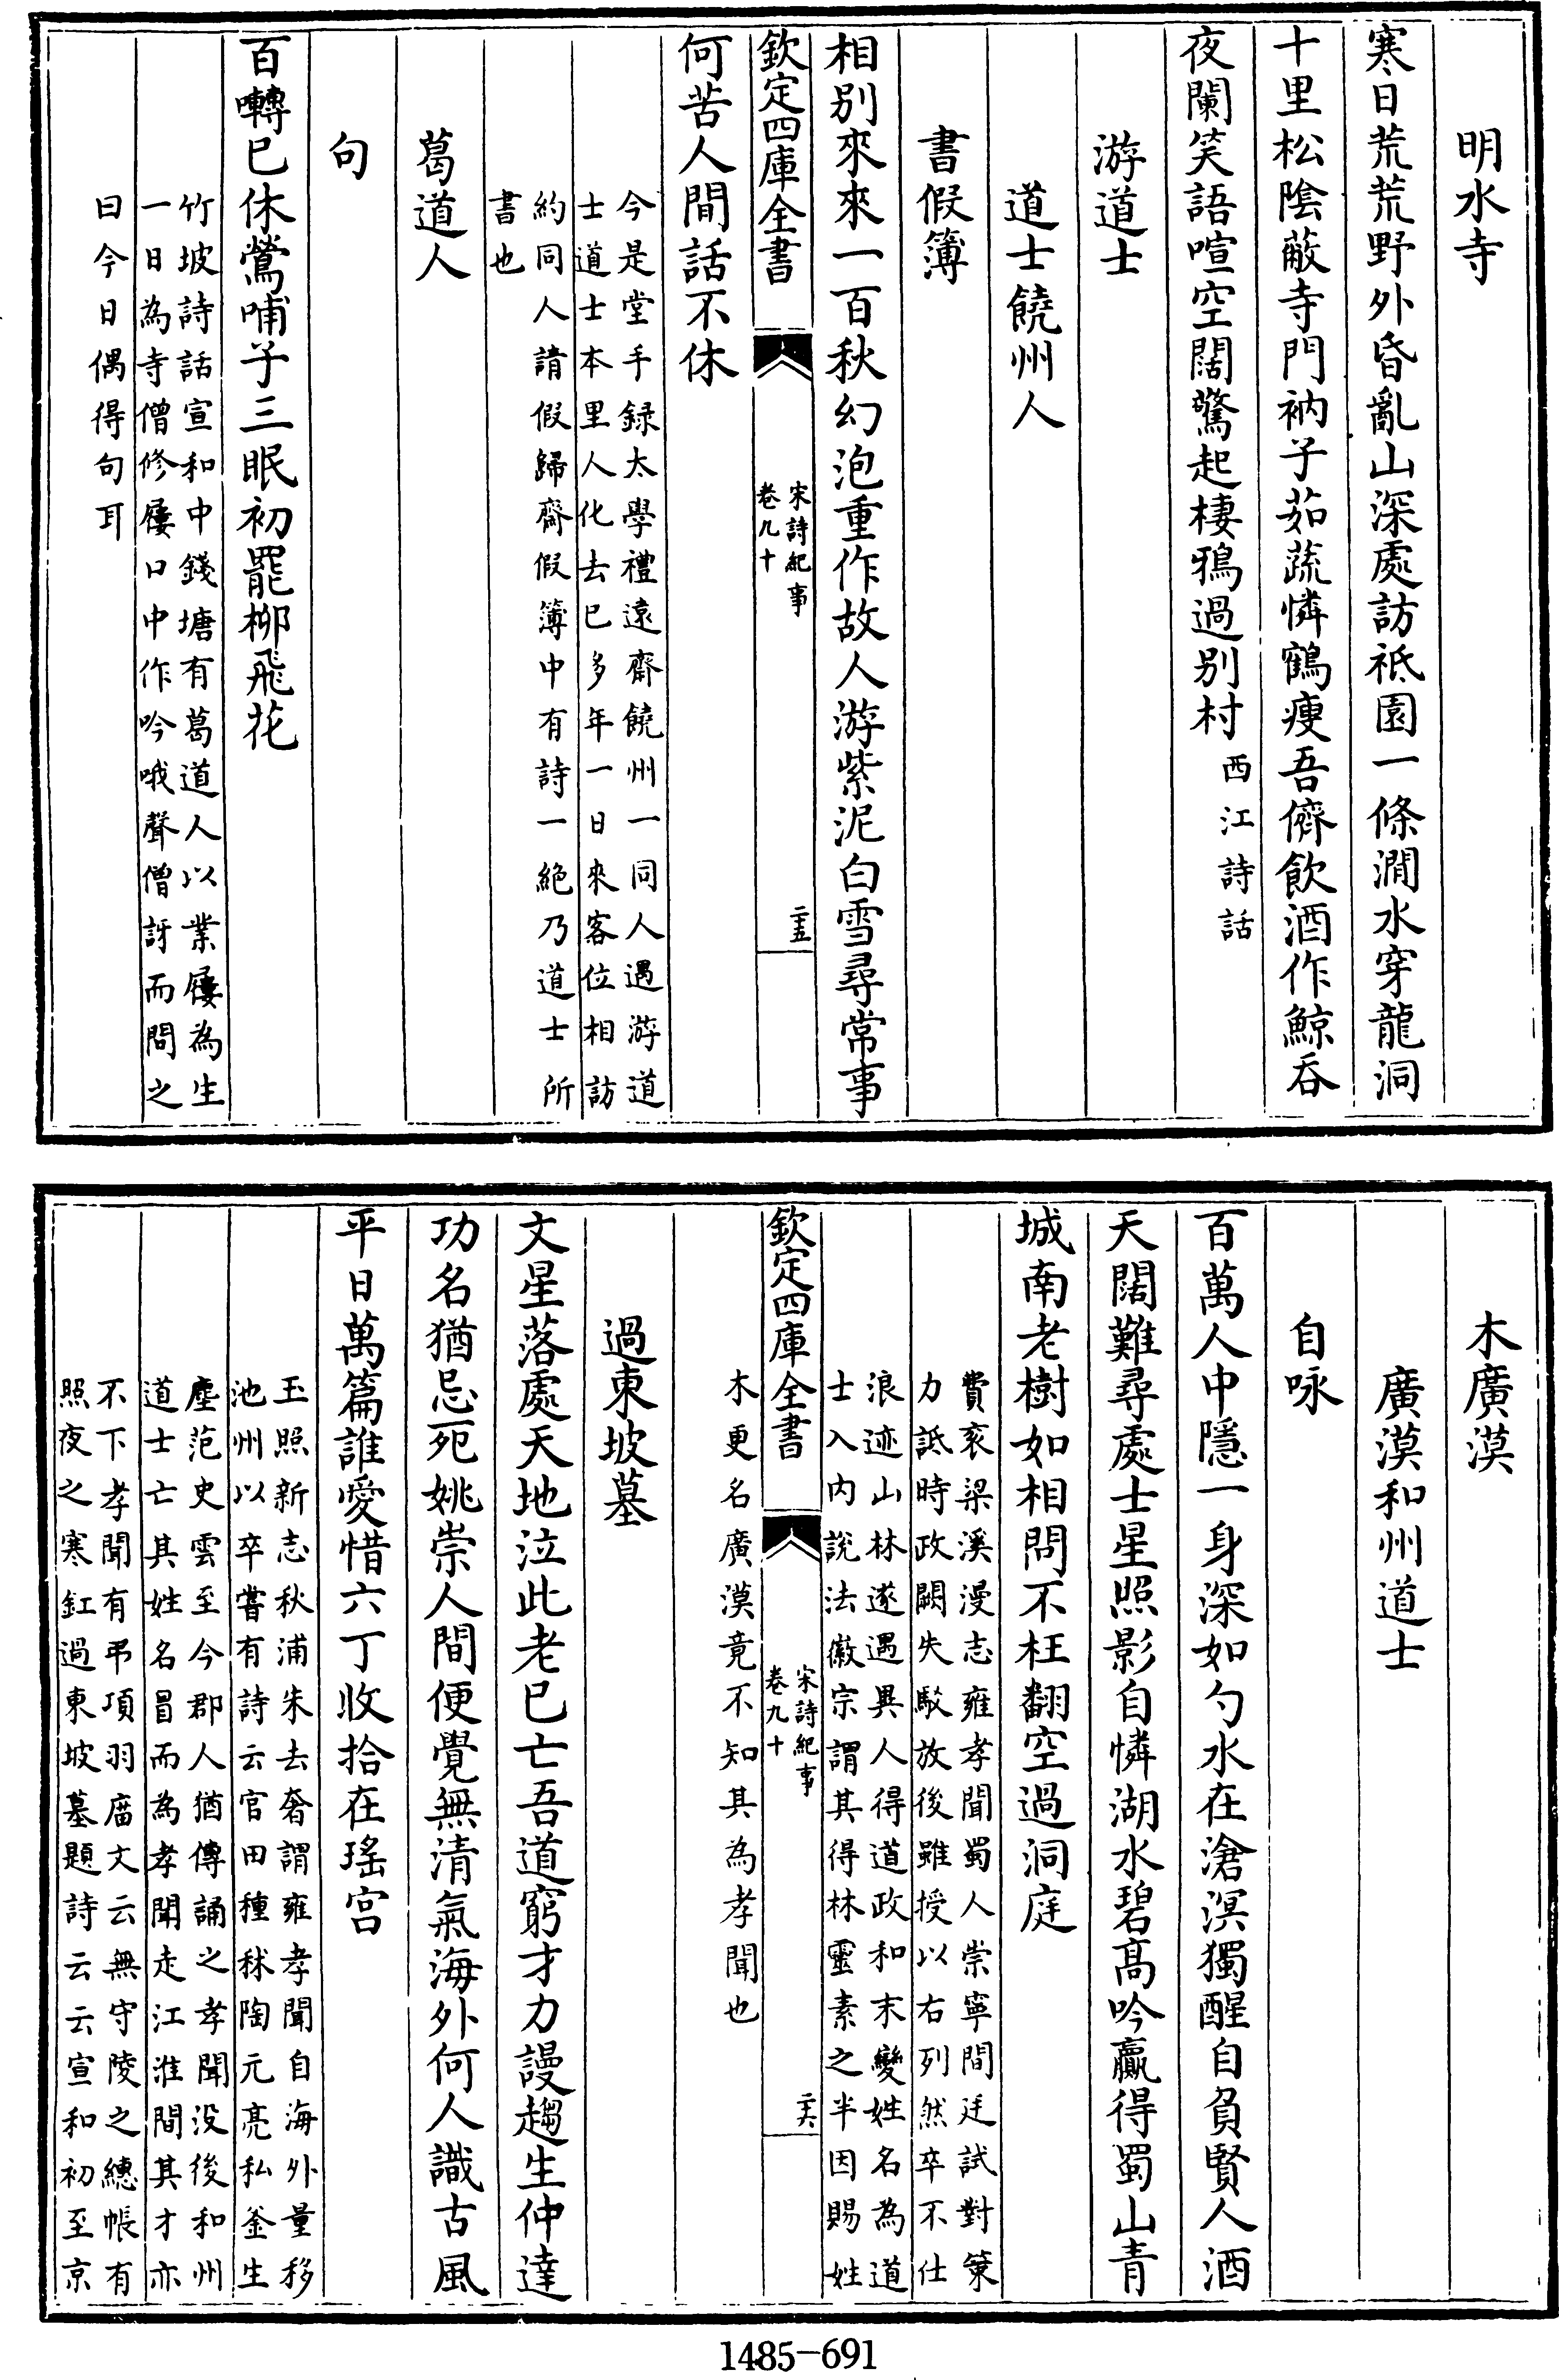 明水寺
寒日荒荒野外昏亂山深處訪祗園一條澗水穿龍洞
十里松陰蔽寺門衲子茹蔬憐鶴瘦吾儕飲酒作鯨吞
夜闌笑語喧空闊驚起棲鴉過别村西江詩話
游道士
道士饒州人
書假簿
相别來來一百秋幻泡重作故人游紫泥白雪尋常事
欽定四庫全書
宋詩紀事
卷九十
二五
何苦人間話不休
今是堂手録太學禮遠齋饒州一同人遇游道
士道士本里人化去已多年一日來客位相訪
約同人請假歸齋假簿中有詩一絶乃道士所
書也
葛道人
句
百囀已休鶯哺子三眠初罷柳飛花
竹坡詩話宣和中錢塘有葛道人以業屨為生
一日為寺僧修屨口中作吟哦聲僧訝而問之
曰今日偶得句耳
木廣漠
廣漠和州道士
自咏
百萬人中隱一身深如勺水在滄溟獨醒自負賢人酒
天闊難尋處士星照影自憐湖水碧高吟贏得蜀山青
城南老樹如相問不枉翻空過洞庭
費衮梁溪漫志雍孝聞蜀人崇寧間廷試對策
力詆時政闕失駁放後雖授以右列然卒不仕
浪迹山林遂遇異人得道政和末變姓名為道
士入内說法徽宗謂其得林靈素之半因賜姓
欽定四庫全書
宋詩紀事
卷九十
二六
木更名廣漠竟不知其為孝聞也
過東坡墓
文星落處天地泣此老已亡吾道窮才力謾趨生仲達
功名猶忌死姚崇人間便覺無清氣海外何人識古風
平日萬篇誰愛惜六丁收拾在瑤宫
王照新志秋浦朱去奢謂雍孝聞自海外量移
池州以卒嘗有詩云官田種秫陶元亮私釜生
塵范史雲至今郡人猶傳誦之孝聞没後和州
道士亡其姓名冒而為孝聞走江淮間其才亦
不下孝聞有弔項羽庿文云無守陵之繐帳有
照夜之寒釭過東坡墓題詩云云宣和初至京
1485-691